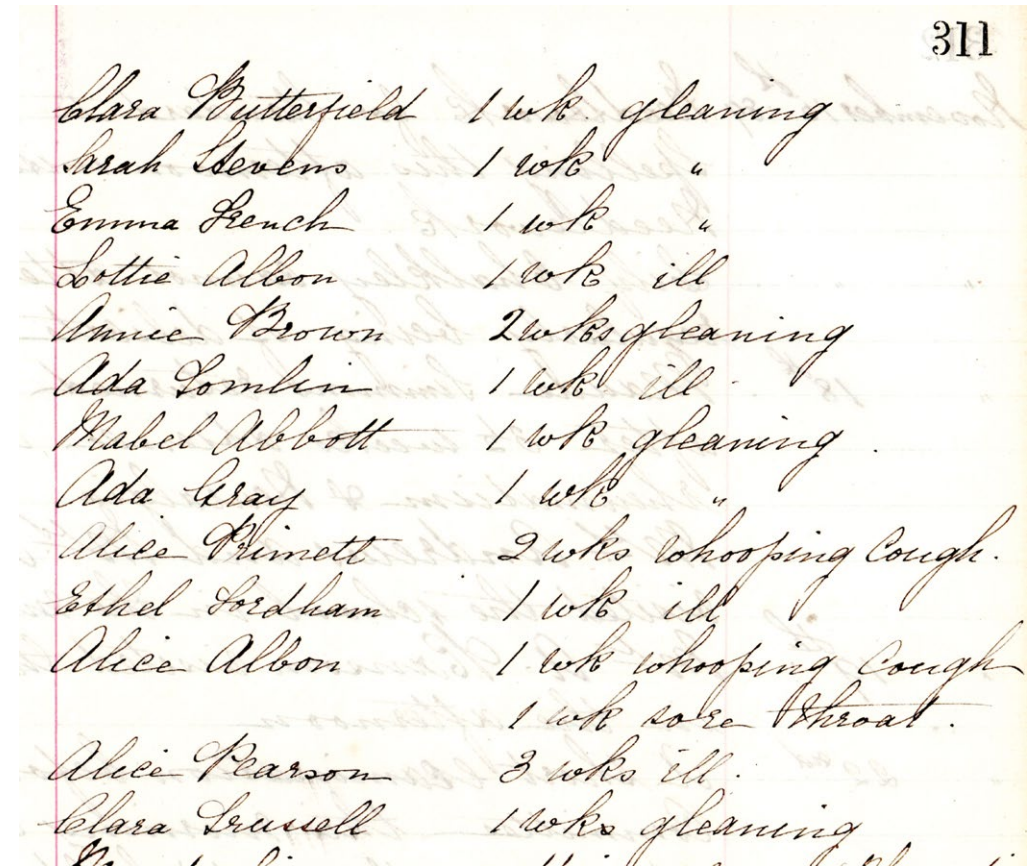 311
Clara Butterfield 1 wk. gleaning
Sarah Stevens 1 wk "
Emma French 1 wk "
Lottie Albon 1 wk ill
Annie Brown 2 wks gleaning
Ada Tomlin 1 wk ill.
Mabel Abbott 1 wk gleaning.
Ada Gray 1 wk "
Alice Primett 2 wks whooping Cough.
Ethel Fordham 1 wk ill
Alice Albon 1 wk whooping Cough
1 wk sore throat.
Alice Pearson 3 wks ill.
Clara Trussell 1 wks gleaning